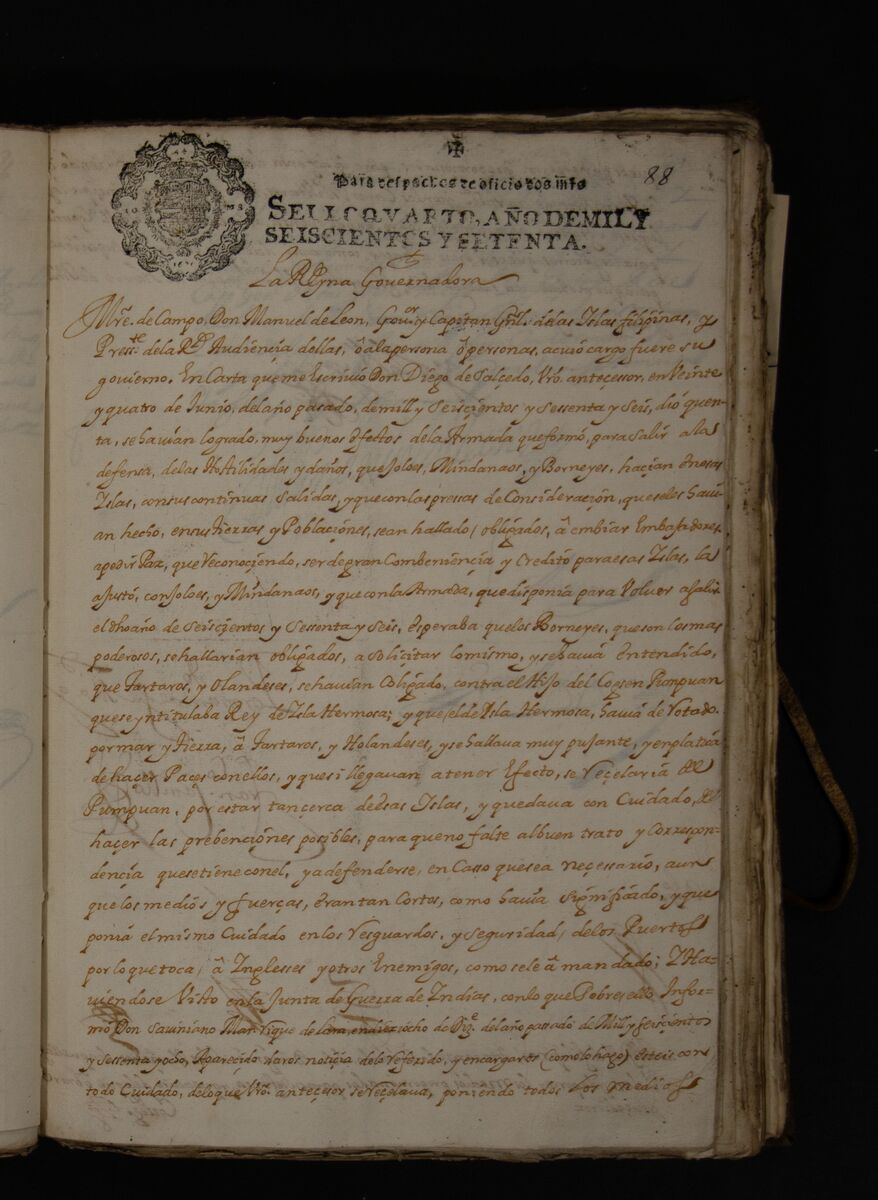 88
Para despachos de oficio dos mrs
SELLO QVARTO, AÑO DE MIL Y
SEISCIENTOS Y SETENTA.
La Reyna Governadora
Mre. de Campo Don Manuel de Leon, Gouor. y Capitan Gnl. delas Islas filipinas, y
Presste. dela Rl. Audiencia dellas, ô ala persona ô personas, a cuio cargo fuere su
govierno. En Carta que me Escriuio Don Diego de Salçedo, Vro. antecessor, en Veinte
y quatro de Junio, delaño pasado, demill y Seisçientos y sessenta y seis, dió quen-
ta, se hauian logrado, muy buenos efectos dela Armada que formó, para salir ala
defensa, delas Hostilidades y daños, que Joloes, Mindanaos, y Borneyes, haçian en esas
Islas, con sus continuas salidas, y que con las pressas de Consideraçion, que se les haui-
an hecho, en sus tierras y Poblaçiones, se an hallado, obligados, â embiar Embajadores,
a pedir Paz, que Reconociendo, ser de gran Combeniençia y Credito para esas Islas, la
ajustó, con Joloes, y Mindanaos, y que con la Armada, que disponia para Volver a salir
el dho año de Seisçientos y Sessenta y Seis, esperaba que los Borneyes, que son los mas
poderosos, se hallarian obligados, a soliçitar lo mismo, y se hauia entendido,
que Tartaros, y Olandeses, se hauian Coligado, contra el Hijo del Cogsen Pumpuan
que se yntitulaba Rey de Isla Hermosa; y que, el de Isla Hermosa, hauia derrotado,
por mar y tierra, â Tartaros, y Holandeses, y se hallava muy pujante, y en platica
de haçer Paces con ellos, y que si llegavan a tener Efecto, se Reçelaria del
Pumpuan, por estar tan çerca de esas Islas, y quedava con Cuidado, de
haçer las prebençiones posibles, para que no falte al buen trato y Correspon-
dençia que se tiene con el, y a defenderse, en Casso que sea neçessario, aun
que los medios y fuerças, eran tan Cortos, como hauia significado, y que
ponia el mismo Cuidado en los Resguardos, y seguridad, delos Puertos
por lo que toca, â Inglesses y otros Enemigos, como se le â mandado; Y Ha-
uiendose Visto en la Junta de Guerra de Indias, con lo que sobre ello Infor-
mó Don Sauiniano Manrique de Lara, en diez y ocho de Dize. del año passado de Mill y seisçientos
y sessenta y ocho, Apareçido daros notiçia delo Referido, y encargaros (como lo hago) esteis con
todo Cuidado, de lo que Vro. anteçesor se Reçelava, poniendo todos los medios